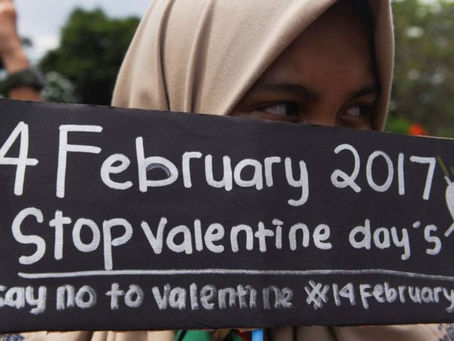 4 February 2017
Stop Valentine day's
say no to valentine #14 February